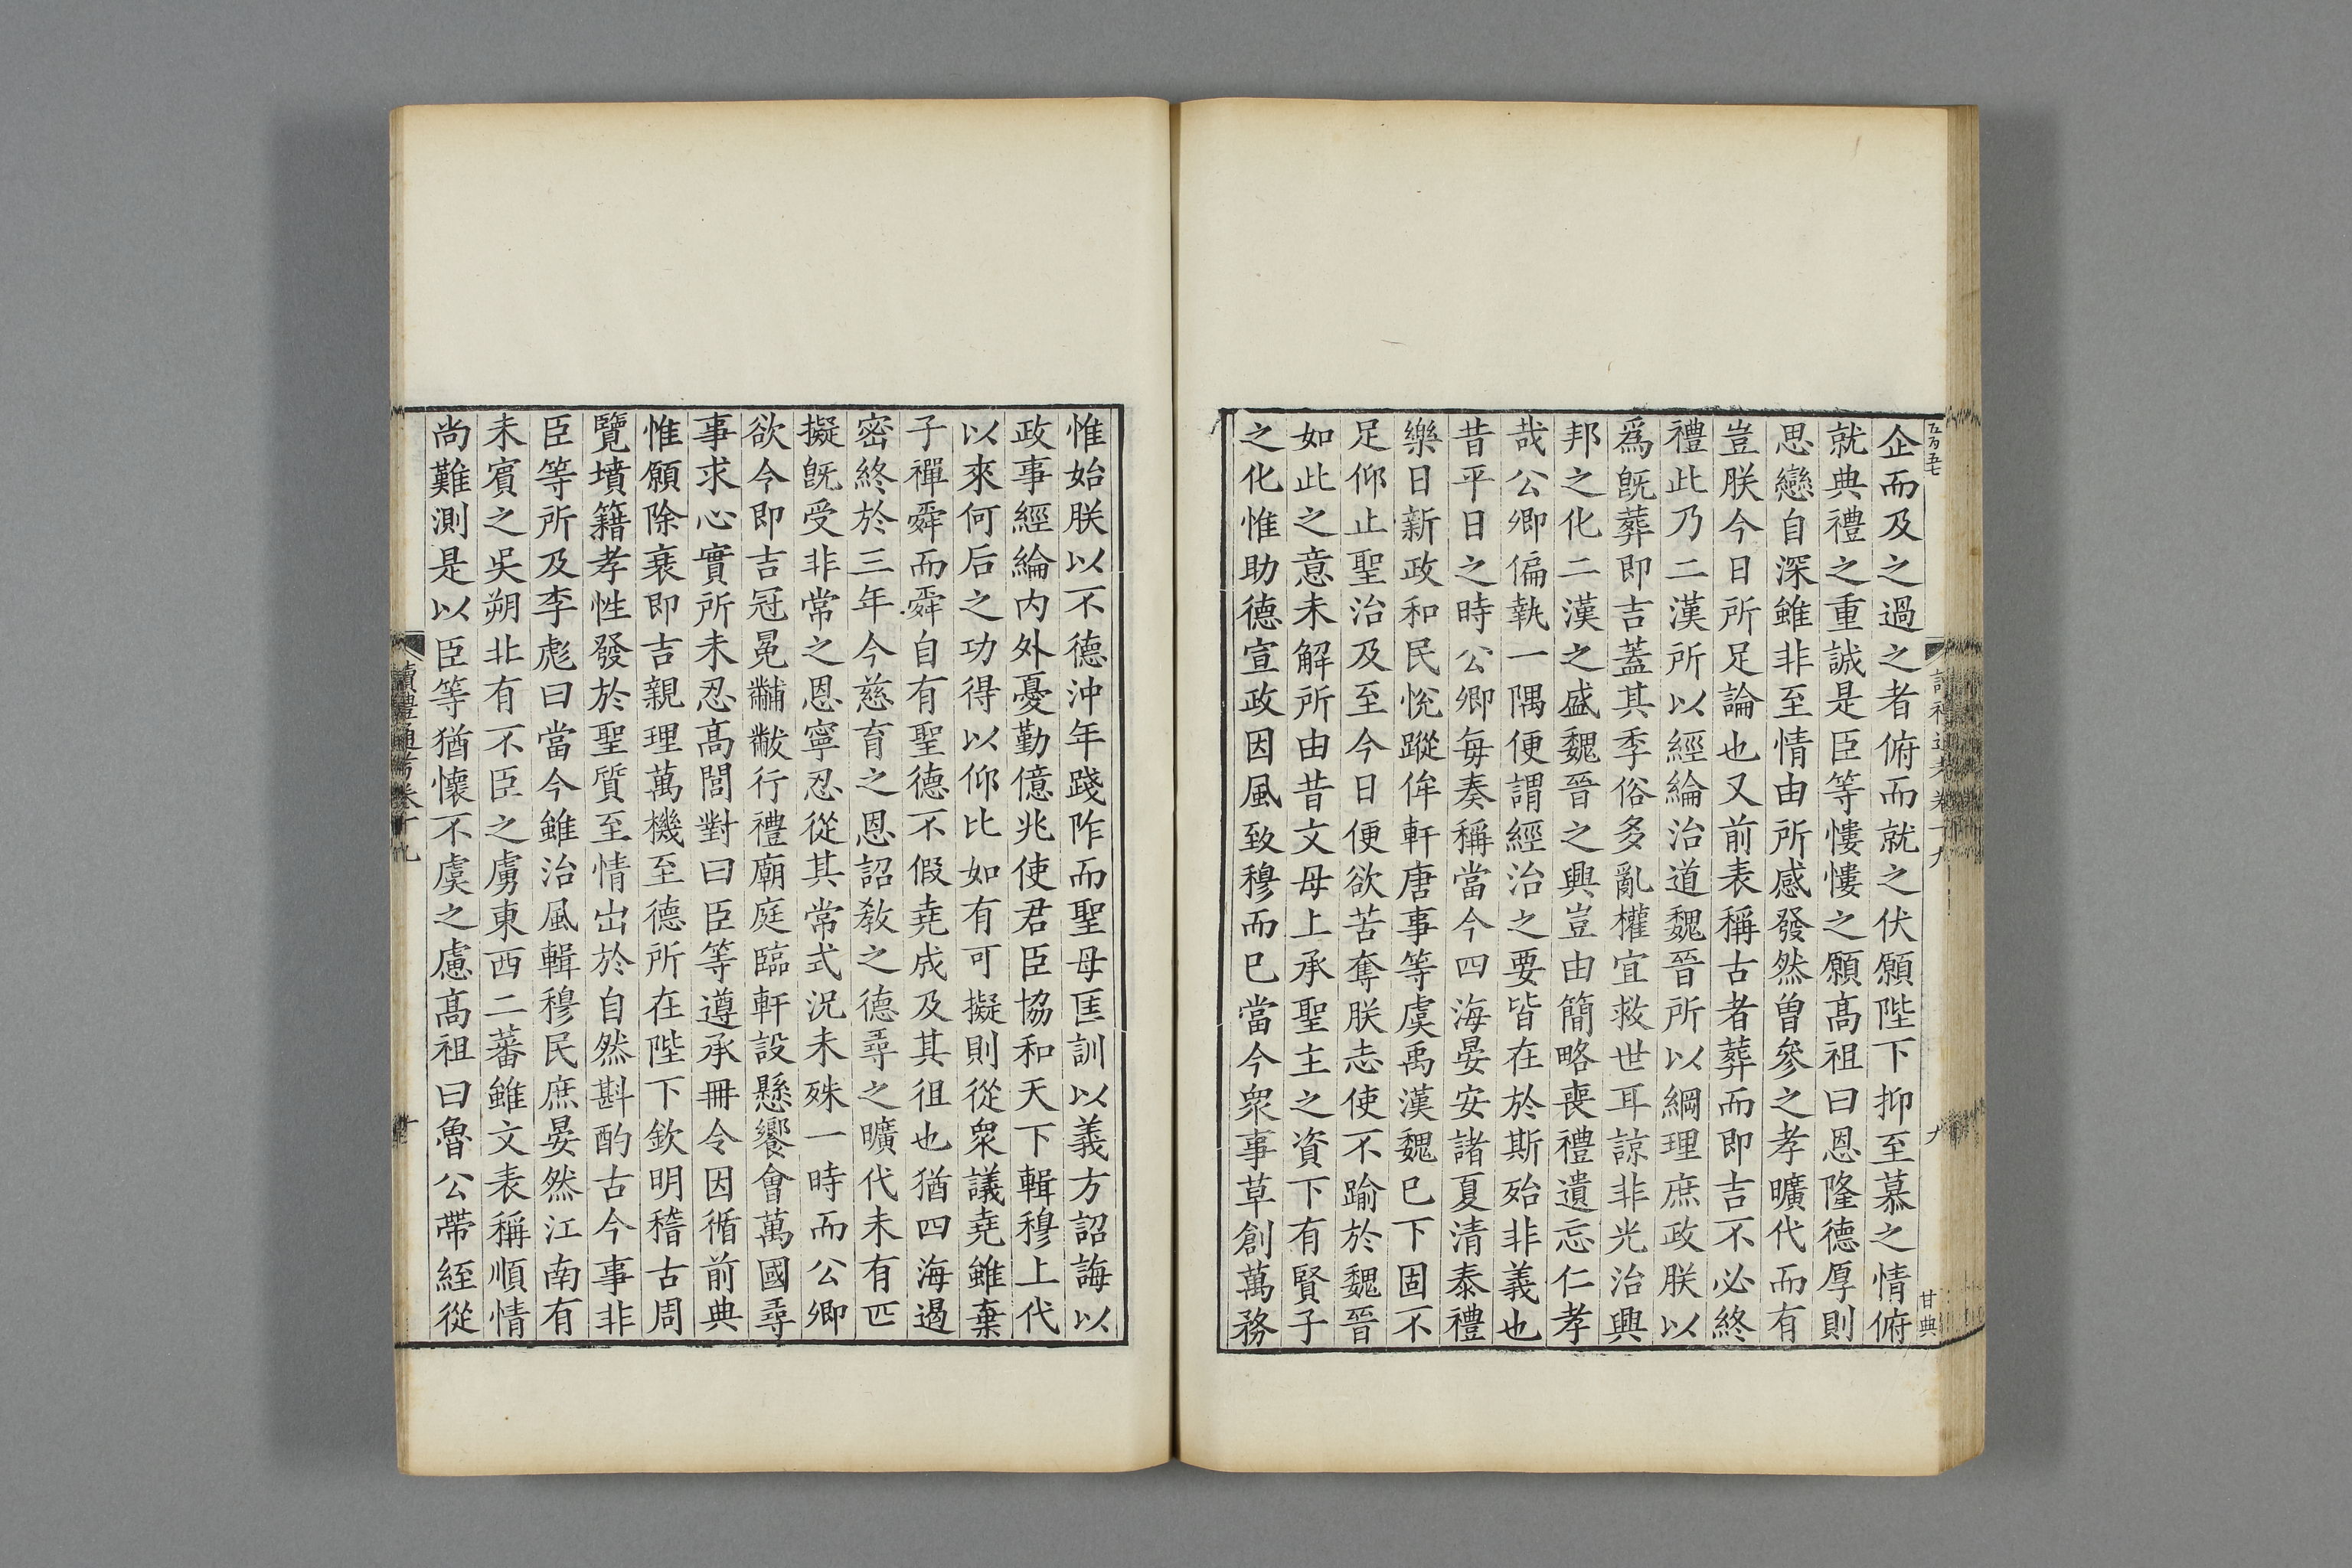 企而及之過之者俯而就之伏願陛下抑至慕之情俯
就典禮之重誠是臣等慺慺之願髙祖曰恩隆德厚則
思戀自深雖非至情由所感發然曾參之孝曠代而有
豈朕今日所足論也又前表稱古者葬而即吉不必終
禮此乃二漢所以經綸治道魏晉所以綱理庶政朕以
爲既葬即吉蓋其季俗多亂權宜救世耳諒非光治興
邦之化二漢之盛魏晉之興豈由簡略喪禮遺忘仁孝
哉公卿偏執一隅便謂經治之要皆在於斯殆非義也
昔平日之時公卿每奏稱當今四海晏安諸夏清泰禮
樂日新政和民悅蹤侔軒唐事等虞禹漢魏已下固不
足仰止聖治及至今日便欲苦奪朕志使不踰於魏晉
如此之意未解所由昔文母上承聖主之資下有賢子
之化惟助德宣政因風致穆而已當今衆事草創萬務
惟始朕以不德沖年踐阼而聖母匡訓以義方詔誨以
政事經綸内外憂勤億兆使君臣協和天下輯穆上代
以來何后之功得以仰比如有可擬則從衆議堯雖棄
子禪舜而舜自有聖德不假堯成及其徂也猶四海遏
密終於三年今慈育之恩詔教之德尋之曠代未有匹
擬既受非常之恩寧忍從其常式況未殊一時而公卿
欲令即吉冠冕黼黻行禮廟庭臨軒設懸饗會萬國尋
事求心實所未忍髙閭對曰臣等遵承冊令因循前典
惟願除衰即吉親理萬機至德所在陛下欽明稽古周
覽墳籍孝性發於聖質至情出於自然斟酌古今事非
臣等所及李彪曰當今雖治風輯穆民庶晏然江南有
未賓之吳朔北有不臣之虜東西二蕃雖文表稱順情
尚難測是以臣等猶懷不虞之慮髙祖曰魯公帶絰從
讀禮通考卷十九
十
五百五七
九
甘典